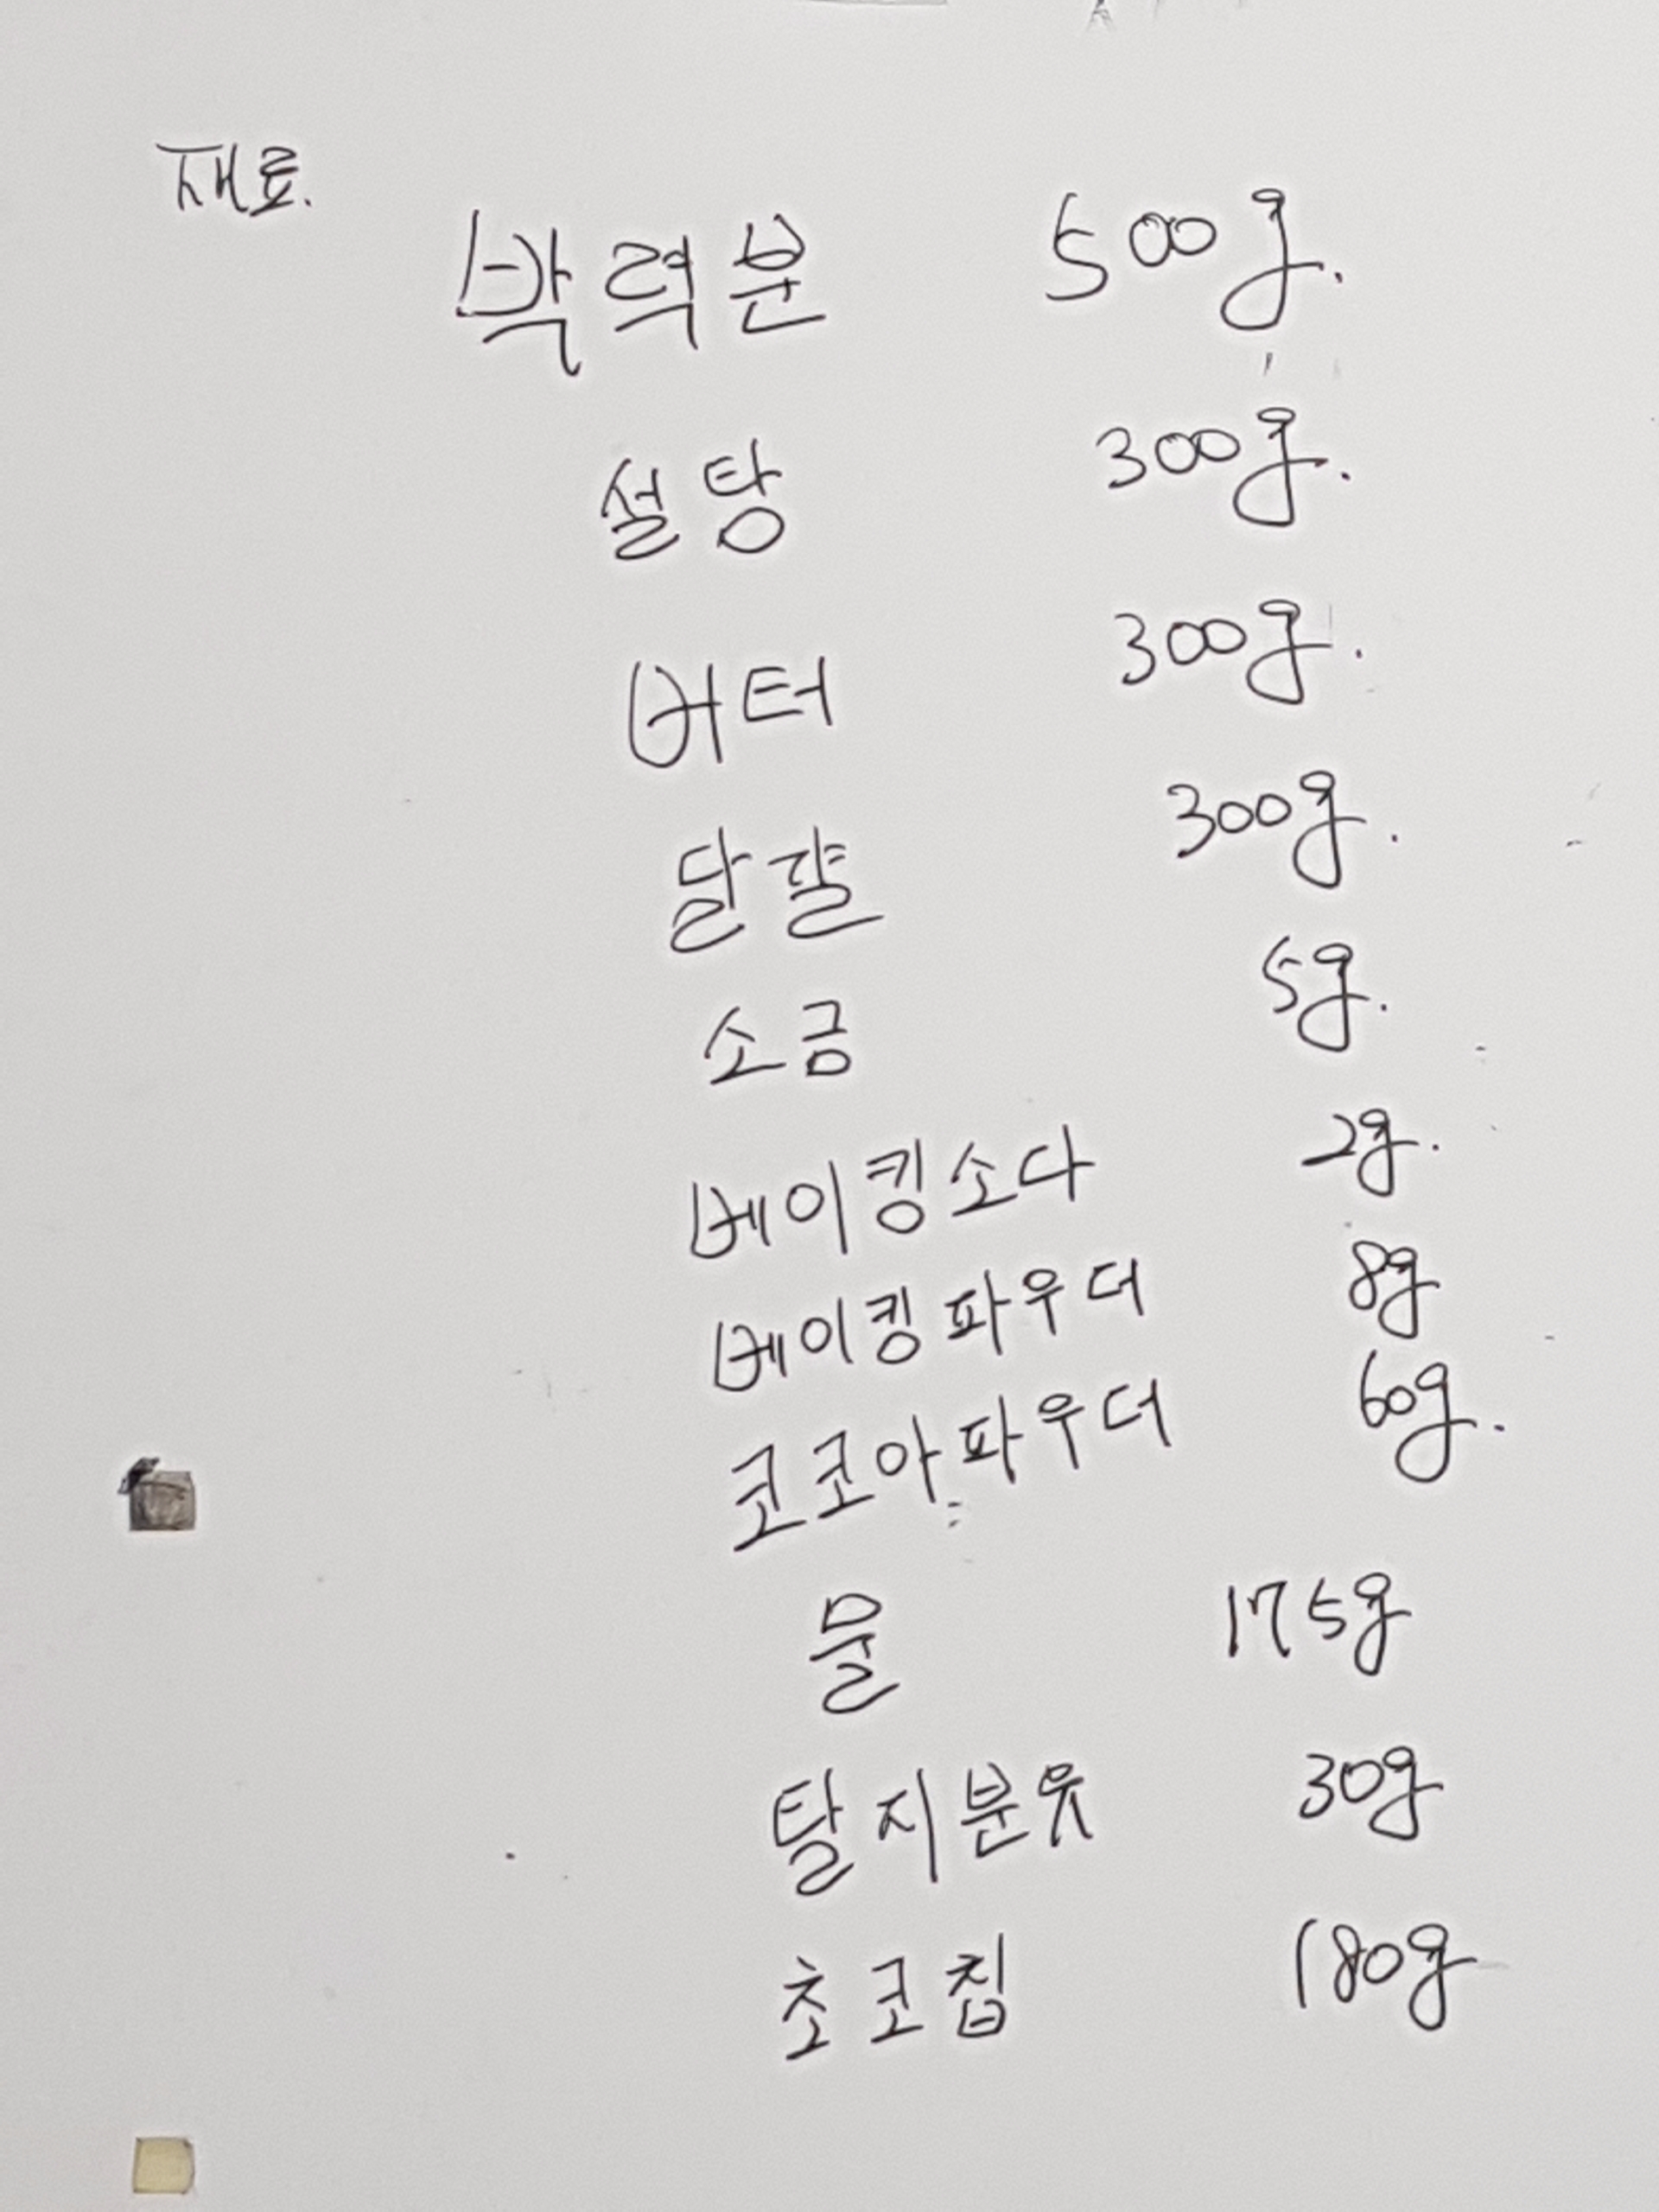 재료.
박력분 500g.
설탕 300g.
버터 300g.
달걀 300g.
소금 5g.
베이킹소다 2g.
베이킹파우더 8g
코코아파우더 60g.
물 175g
탈지분유 30g
초코칩 180g